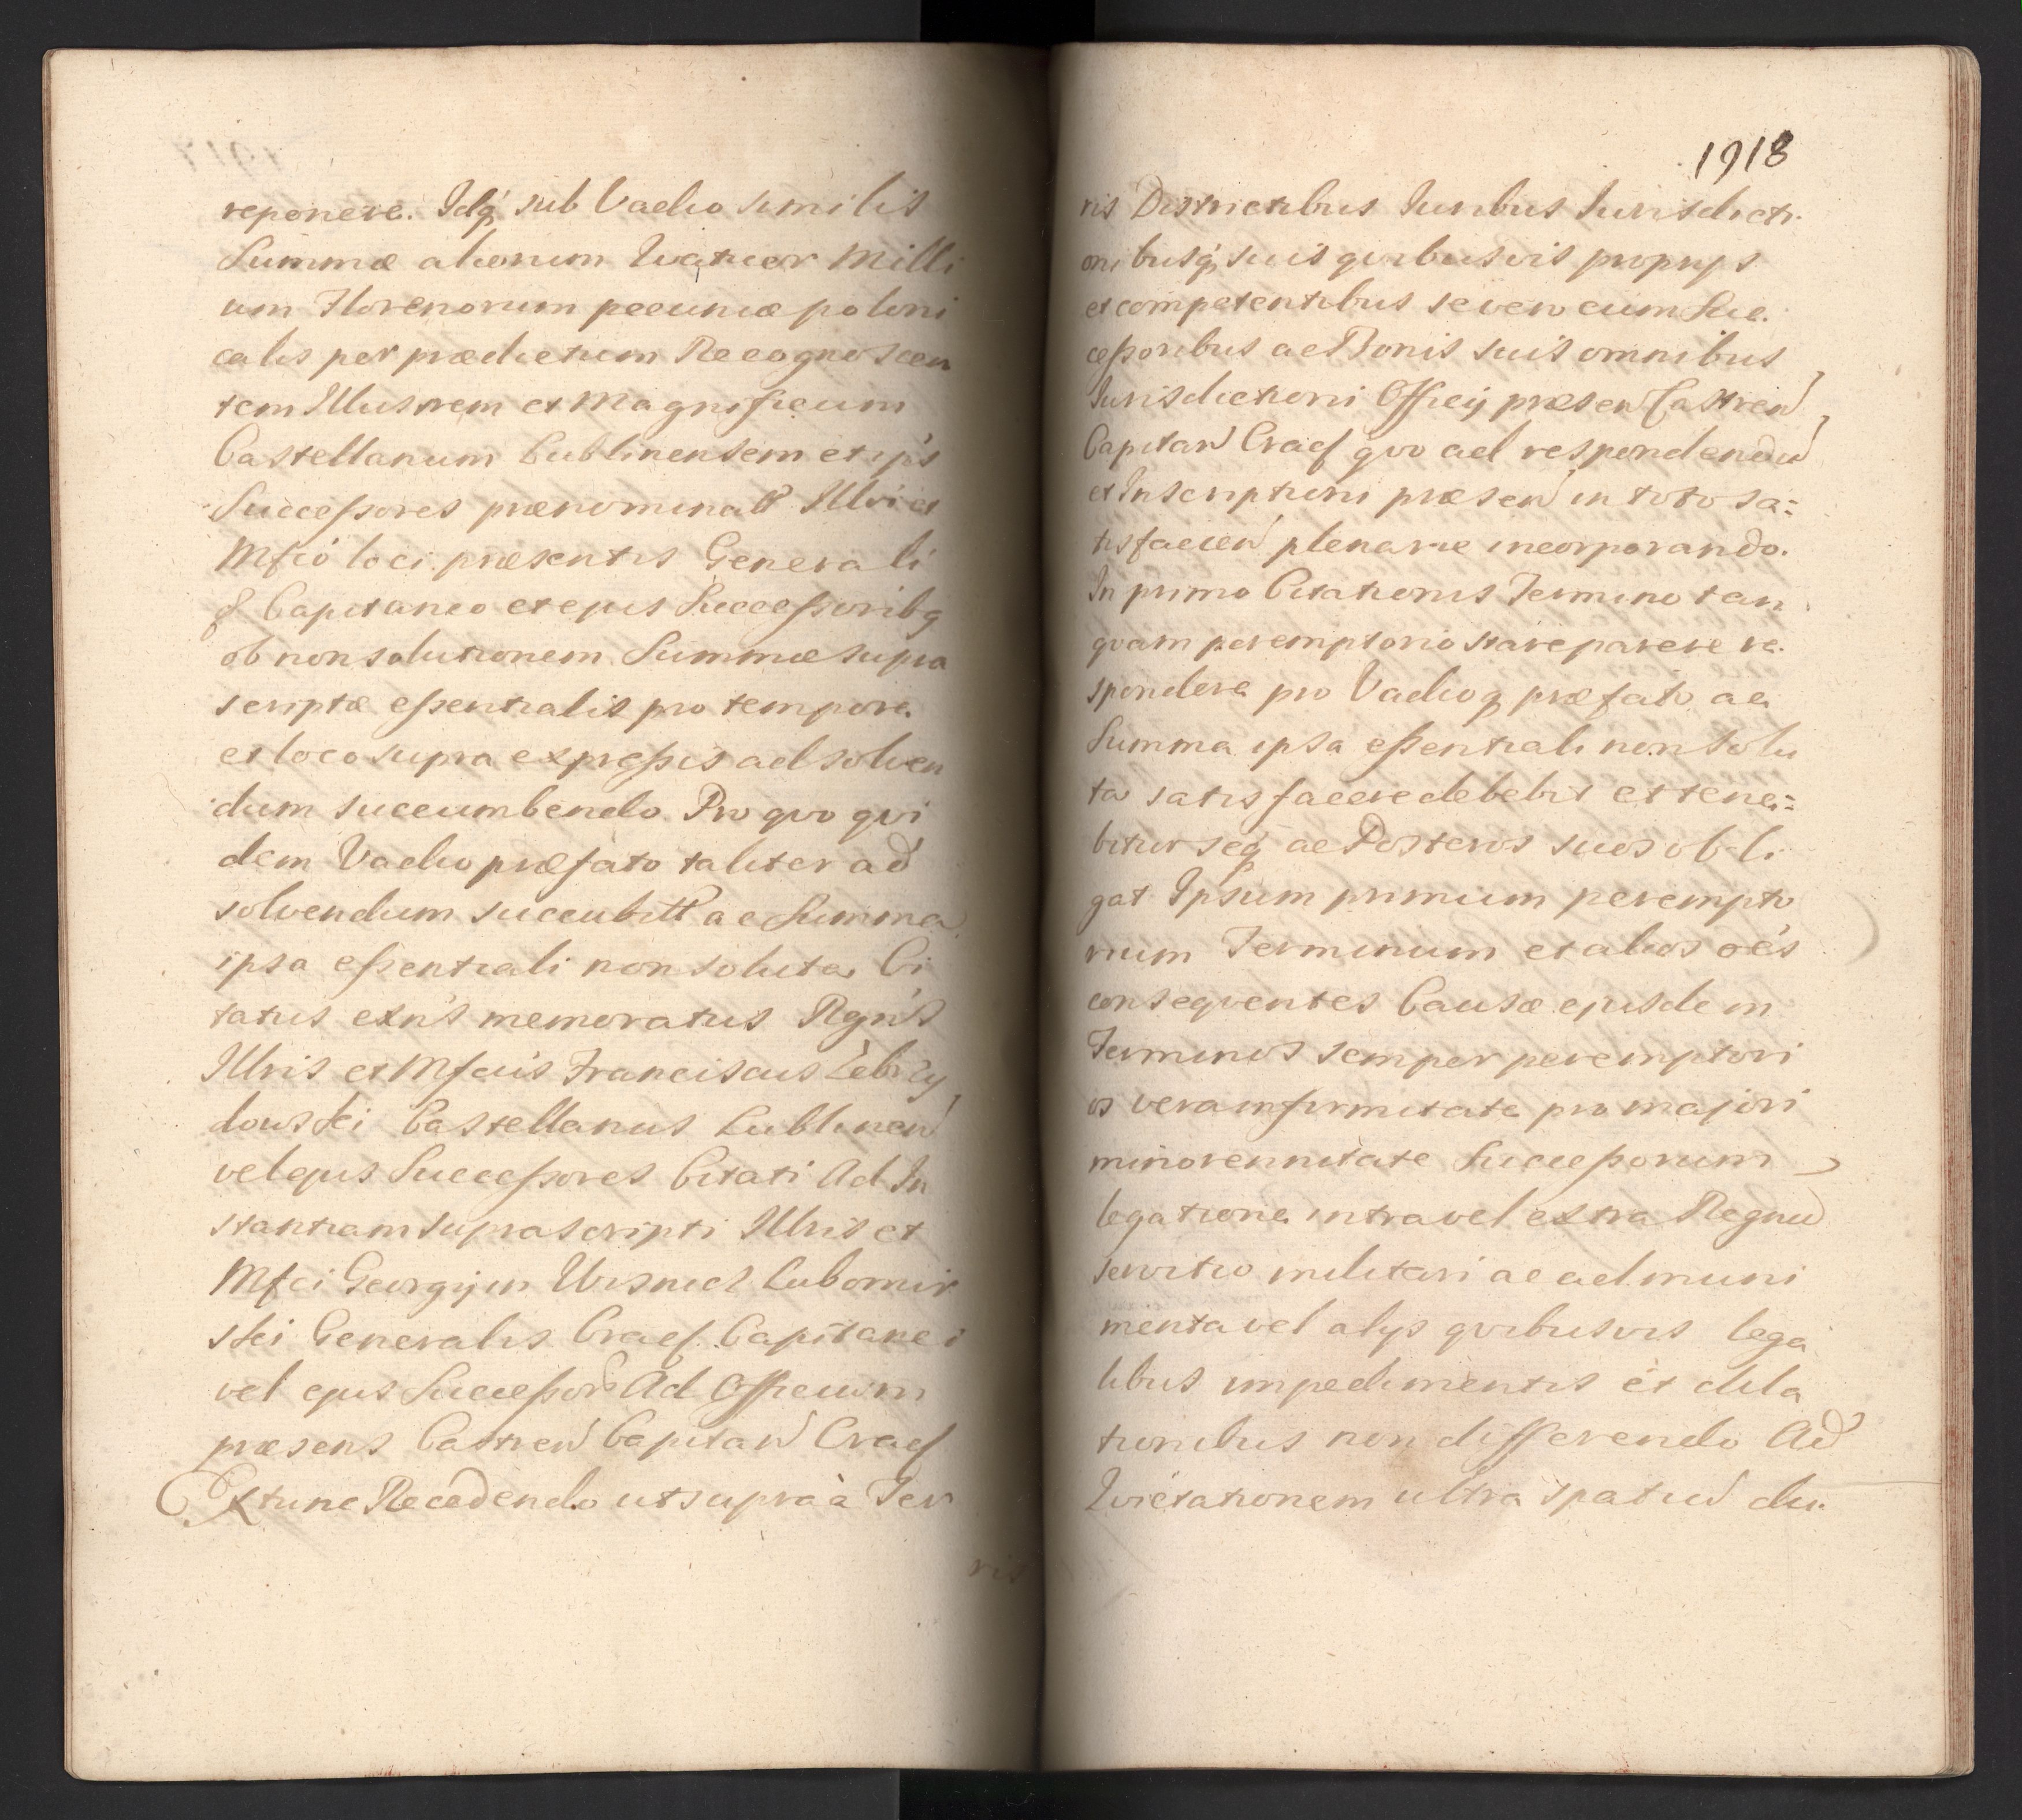 reponere. Idq́ sub Vadio similis
Summæ aliorum Quatuor Milli
um Florenorum pecuniæ poloni
calis per prædictum Recognoscen
tem Illustrem et Magnificum
Castellanum Lublinensem et ejus
Succeßores prænominatt Illri et
Mfco loci præsentis Generali
Capitaneo et ejus Succeßoribq
ob non solutionem Summæ supra
scriptæ eßentialis pro tempore
et loco supra expreßis ad solven
dum succumbendo Pro qvo qvi
dem Vadio præfato taliter ad
solvendum succubitt ac Summa
ipsa eßentiali non soluta Ci
tatus exńs memoratus Rgńs
Illris et Mfcus Franciscus Zebrzy
dowski Castellanus Lublinen
vel ejus Succeßores Citati Ad In
stantiam suprascripti Illris et
Mfci Georgij in Wisnicz Lubomir
ski Generalis Crac Capitanei
vel ejus Succeßor Ad Officium
præsens Castren Capitan Crac
Extunc Recedendo ut supra à Ter
ris
1918
ris Districtibus Juribus Jurisdicti
onibusq́ suis qvibusvis proprijs
et competentibus se vero cum Suc
ceßoribus ac Bonis suis omnibus
Jurisdictioni Officij præsen Castren
Capitan Crac qvo ad respondendu
et Inscriptioni præsen in toto sa=
tisfacien plenarie incorporando.
In primo Citationis Termino tan
qvam peremptorio stare parere re
spondere pro Vadioq præfato ac
Summa ipsa eßentiali non solu
ta satisfacere debebit et tene=
bitur seq ac Posteros suos obli
gat Ipsum primum perempto
rium Terminum et alios oés
conseqventes Causæ ejusdem
Terminos semper peremptori
os vera infirmitate pro majori
minorennitate Succeßorum
legatione intra vel extra Regnu
servitio militari ac ad muni
menta vel alijs qvibusvis lega
libus impedimentis et dila
tionibus non differendo Ad
Qvietationem ultra spatiu du